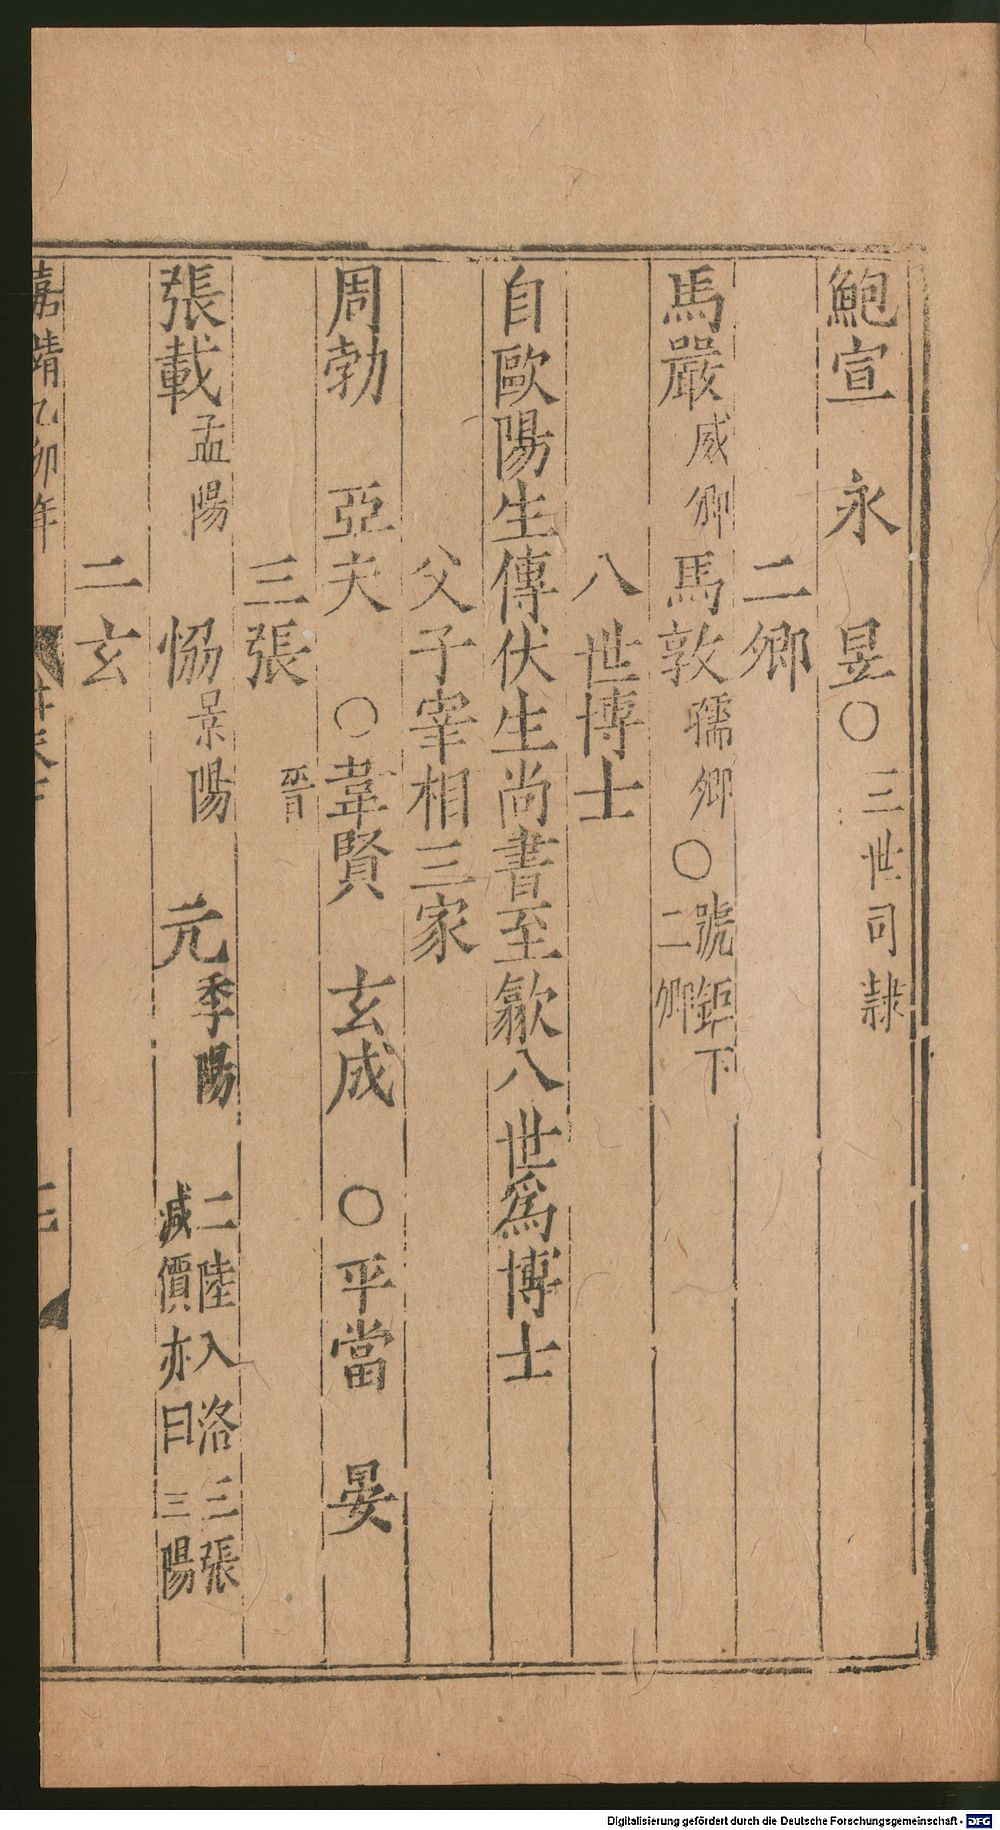 鮑宣　永　昱○三世司隷
二卿
馬嚴威卿馬敦孺卿○號鉅下二卿
八世博士
自歐陽生傳伏生尚書至歙八世爲博士
父子宰相三家
周勃　亞夫　○韋賢　玄成　○平當　晏
三張　晉
張載孟陽　恊景陽　元季陽　二陸入洛三張減價亦曰三陽
二玄
嘉靖乙卯年
Digitalisierung gefördert durch die Deutsche Forschungsgemeinschaft - DFG